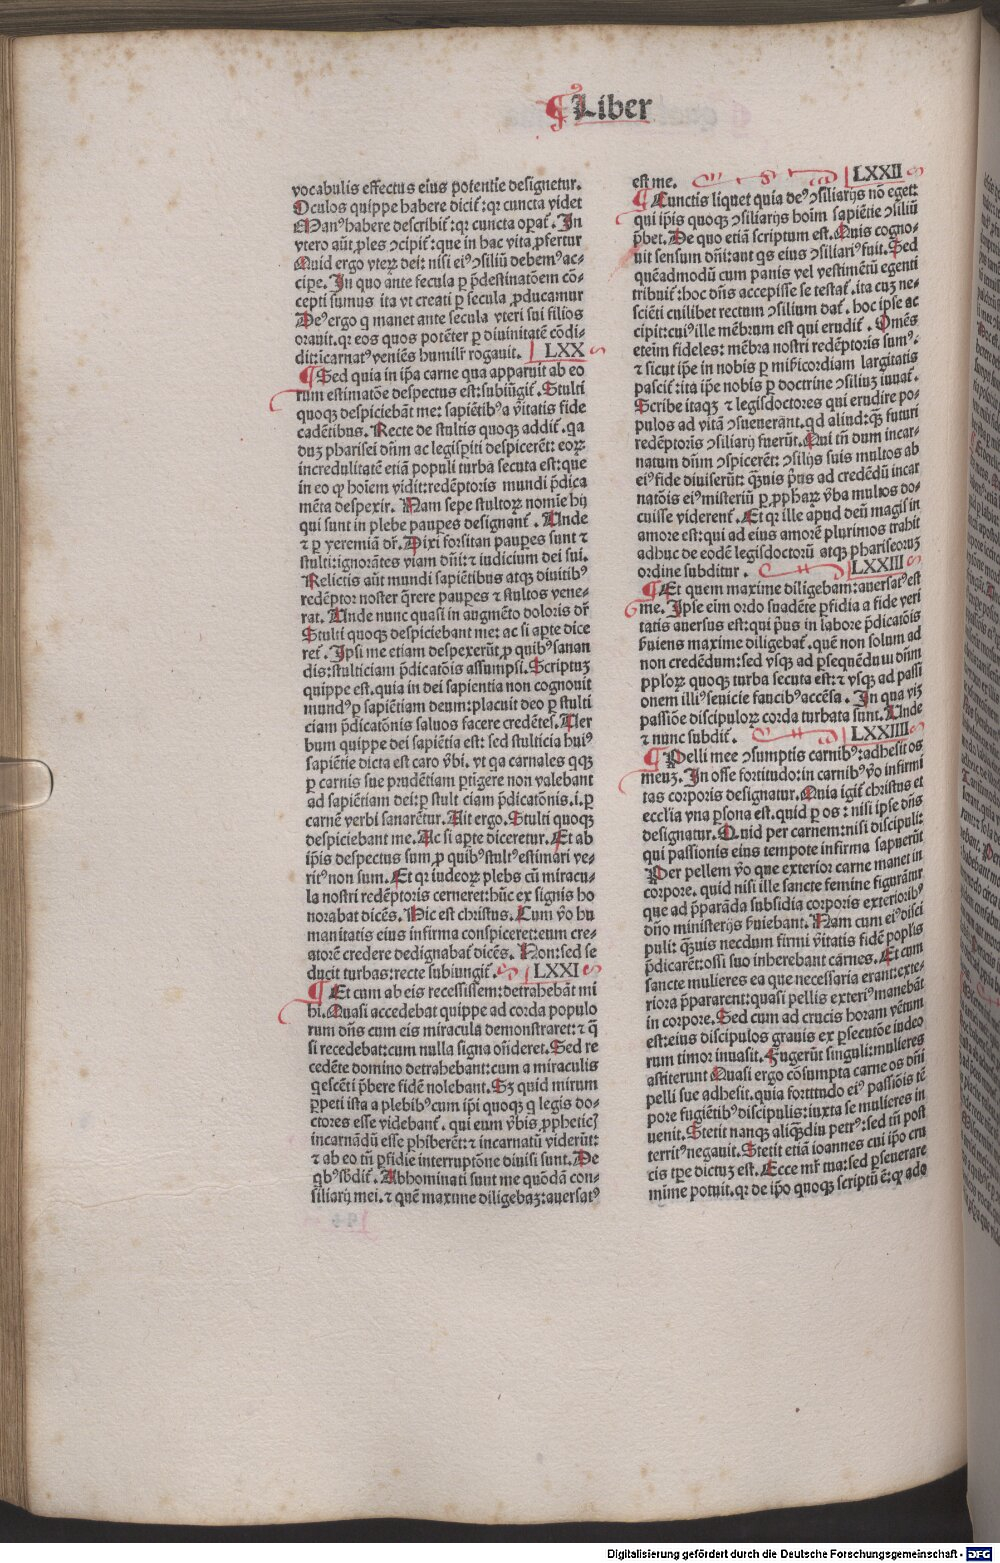 ¶ Liber
vocabulis effectus eius potentie designetur.
Oculos quippe habere dicit̃: qꝛ cuncta videt
Manꝰ habere describit̃: qꝛ cuncta oꝑat̃. In
vtero aũt ꝓles ↄcipit̃: que in hac vita ꝓfertur
Quid ergo vteꝝ dei: nisi eiꝰ ↄsiliũ debemꝰ ac-
cipe. In quo ante secula ꝑ p̃destinatõem cõ-
cepti sumus ita vt creati ꝑ secula ꝓducamur
Deꝰ ergo q manet ante secula vteri sui filios
orauit. qꝛ eos quos potẽter ꝑ diuinitatẽ cõdi-
dit: icarnatꝰ veniẽs humilr̃ rogauit. LXX
¶ Sed quia in ip̃a carne qua apparuit ab eo
rum estimatõe despectus est: subiũgit̃. Stulti
quoqꝫ despiciebãt me: sapiẽtibꝰ a ṽitatis fide
cadẽtibus. Recte de stultis quoqꝫ addit̃. qa
duꝫ pharisei dñm ac legisꝑiti despicerẽt: eoꝝ
incredulitatẽ etiã populi turba secuta est: que
in eo qꝙ hoĩem vidit: redẽptoris mundi p̃dica
mẽta despexit. Nam sepe stultoꝝ nomĩe hij
qui sunt in plebe pauꝑes designant̃. Unde
⁊ ꝑ yeremiã dr̃. Dixi forsitan pauꝑes sunt ⁊
stulti: ignorãtes viam dñi: ⁊ iudicium dei sui.
Relictis aũt mundi sapiẽtibus atqꝫ diuitibꝰ
redẽptor noster q̃rere pauꝑes ⁊ stultos vene-
rat. Unde nunc quasi in augmẽto doloris dr̃
Stulti quoqꝫ despiciebant me: ac si aꝑte dice
ret̃. Ipsi me etiam despexerũt ꝓ quibꝰ sanan
dis: stulticiam p̃dicatõis assumpsi. Scriptuꝫ
quippe est. quia in dei sapientia non cognouit
mundꝰ ꝑ sapiẽtiam deum: placuit deo ꝑ stulti
ciam p̃dicatõnis saluos facere credẽtes. Uer
bum quippe dei sapiẽtia est: sed stulticia huiꝰ
sapiẽtie dicta est caro ṽbi. vt qa carnales qͥqꝫ
ꝑ carnis sue prudẽtiam ꝑtigere non valebant
ad sapiẽtiam dei: ꝑ stult ciam p̃dicatõnis. i. ꝑ
carnẽ verbi sanarẽtur. Ait ergo. Stulti quoqꝫ
despiciebant me. Ac si aꝑte diceretur. Et ab
ip̃is despectus sum ꝓ quibꝰ stultꝰ estimari ve-
ritꝰ non sum. Et qꝛ iudeoꝝ plebs cũ miracu-
la nostri redẽptoris cerneret: hũc ex signis ho
norabat dicẽs. Hic est christus. Cum ṽo hu
manitatis eius infirma conspiceret: eum cre-
atorẽ credere dedignabat̃ dicẽs. Non: sed se
ducit turbas: recte subiungit̃. LXXI
¶ Et cum ab eis recessissem: detrahebãt mi
hi. Quasi accedebat quippe ad corda populo
rum dñs cum eis miracula demonstraret: ⁊ q̃
si recedebat: cum nulla signa oñderet. Sed re
cedẽte domino detrahebant: cum a miraculis
qescẽti p̃bere fidẽ nolebant. Sꝫ quid mirum
ꝑpeti ista a plebibꝰ cum ip̃i quoqꝫ q legis do-
ctores esse videbant̃. qui eum ṽbis ꝓphetic̃
incarnãdũ esse phiberẽt: ⁊ incarnatũ viderũt:
⁊ ab eo tñ ꝑfidie interruptõne diuisi sunt. De
qͥbꝰ s̃bdit̃. Abhominati sunt me quõdã con-
siliarij mei. ⁊ quẽ maxime diligebaꝫ: auersatꝰ
est me. LXXII
¶ Cunctis liquet quia deꝰ ↄsiliarijs nõ eget:
qui ip̃is quoqꝫ ↄsiliarijs hoĩm sapiẽtie ↄsiliũ
p̃bet. De quo etiã scriptum est. Quis cogno-
uit sensum dñi: aut qs eius ↄsiliariꝰ fuit. Sed
quẽadmodũ cum panis vel vestimẽtũ egenti
tribuit̃: hoc dñs accepisse se testat̃. ita cuꝫ ne-
sciẽti cuilibet rectum ↄsilium dat̃. hoc ipse ac
cipit: cuiꝰ ille mẽbrum est qui erudit̃. Omẽs
eteim fideles: mẽbra nostri redẽptoris sumꝰ.
⁊ sicut ip̃e in nobis ꝑ mĩsericordiam largitatis
pascit̃: ita ip̃e nobis ꝑ doctrine ↄsiliuꝫ iuuat̃.
Scribe itaqꝫ ⁊ legisdoctores qui erudire po-
pulos ad vitã ↄsueuerant. qd aliud: qꝫ̃ futuri
redẽptoris ↄsiliarij fuerũt. Qui tñ dum incar-
natum dñm ↄspicerẽt: ↄsilijs suis multos ab
eiꝰ fide diuiserũt: qꝫ̃uis p̃us ad credẽdũ incar
natõis eiꝰ misteriũ ꝑ ꝓpharꝝ ṽba multos do-
cuisse viderent̃. Et qꝛ ille apud deũ magis in
amore est: qui ad eius amorẽ plurimos trahit
adhuc de eodẽ legisdoctorũ atqꝫ phariseoruꝫ
ordine subditur. LXXIII
¶ Et quem maxime diligebam: auersatꝰ est
me. Ipse eĩm ordo suadẽte ꝑfidia a fide veri
tatis auersus est: qui p̃us in labore p̃dicatõis
s̃uiens maxime diligebat̃. quẽ non solum ad
non credẽdum: sed vsqꝫ ad ꝑsequẽdum dñm
pploꝝ quoqꝫ turba secuta est: ⁊ vsqꝫ ad passi
onem illiꝰ seuicie faucibꝰ accẽsa. In qua viꝫ
passiõe discipuloꝝ corda turbata sunt. Unde
⁊ nunc subdit̃. LXXIIII
¶ Pelli mee ↄsumptis carnibꝰ: adhesit os
meuꝫ. In osse fortitudo: in carnibꝰ ṽo infirmi
tas corporis designatur. Quia igit̃ christus et
ecclia vna ꝑsona est. quid ꝑ os: nisi ipse dñs
designatur. Quid per carnem: nisi discipuli:
qui passionis eius tempote infirma sapuerũt
Per pellem ṽo que exterior carne manet in
corpore. quid nisi ille sancte femine figurãtur
que ad p̃parãda subsidia corporis exterioribꝰ
dño ministerijs s̃uiebant. Nam cum eiꝰ disci
puli: qꝫ̃uis necdum firmi ṽitatis fidẽ poplis
p̃dicarẽt: ossi suo inherebant carnes. Et cum
sancte mulieres ea que necessaria erant: exte-
riora p̃pararent: quasi pellis exteriꝰ manebãt
in corpore. Sed cum ad crucis horam vẽtum
est: eius discipulos grauis ex ꝑsecutõe iudeo
rum timor inuasit. Fugerũt singuli: mulieres
astiterunt Quasi ergo cõsumpta carne os dñi
pelli sue adhesit. quia fortitudo eiꝰ passiõis tẽ
pore fugiẽtibꝰ discipulis: iuxta se mulieres in
uenit. Stetit nanqꝫ aliqꝫ̃diu petrꝰ: sed tñ post
territꝰ negauit. Stetit etiã ioannes cui ip̃o cru
cis tꝑe dictuꝫ est. Ecce mr̃ tua: sed ꝑseuerare
mĩme potuit. qꝛ de ip̃o quoqꝫ scriptũ ẽ: qꝛ ado